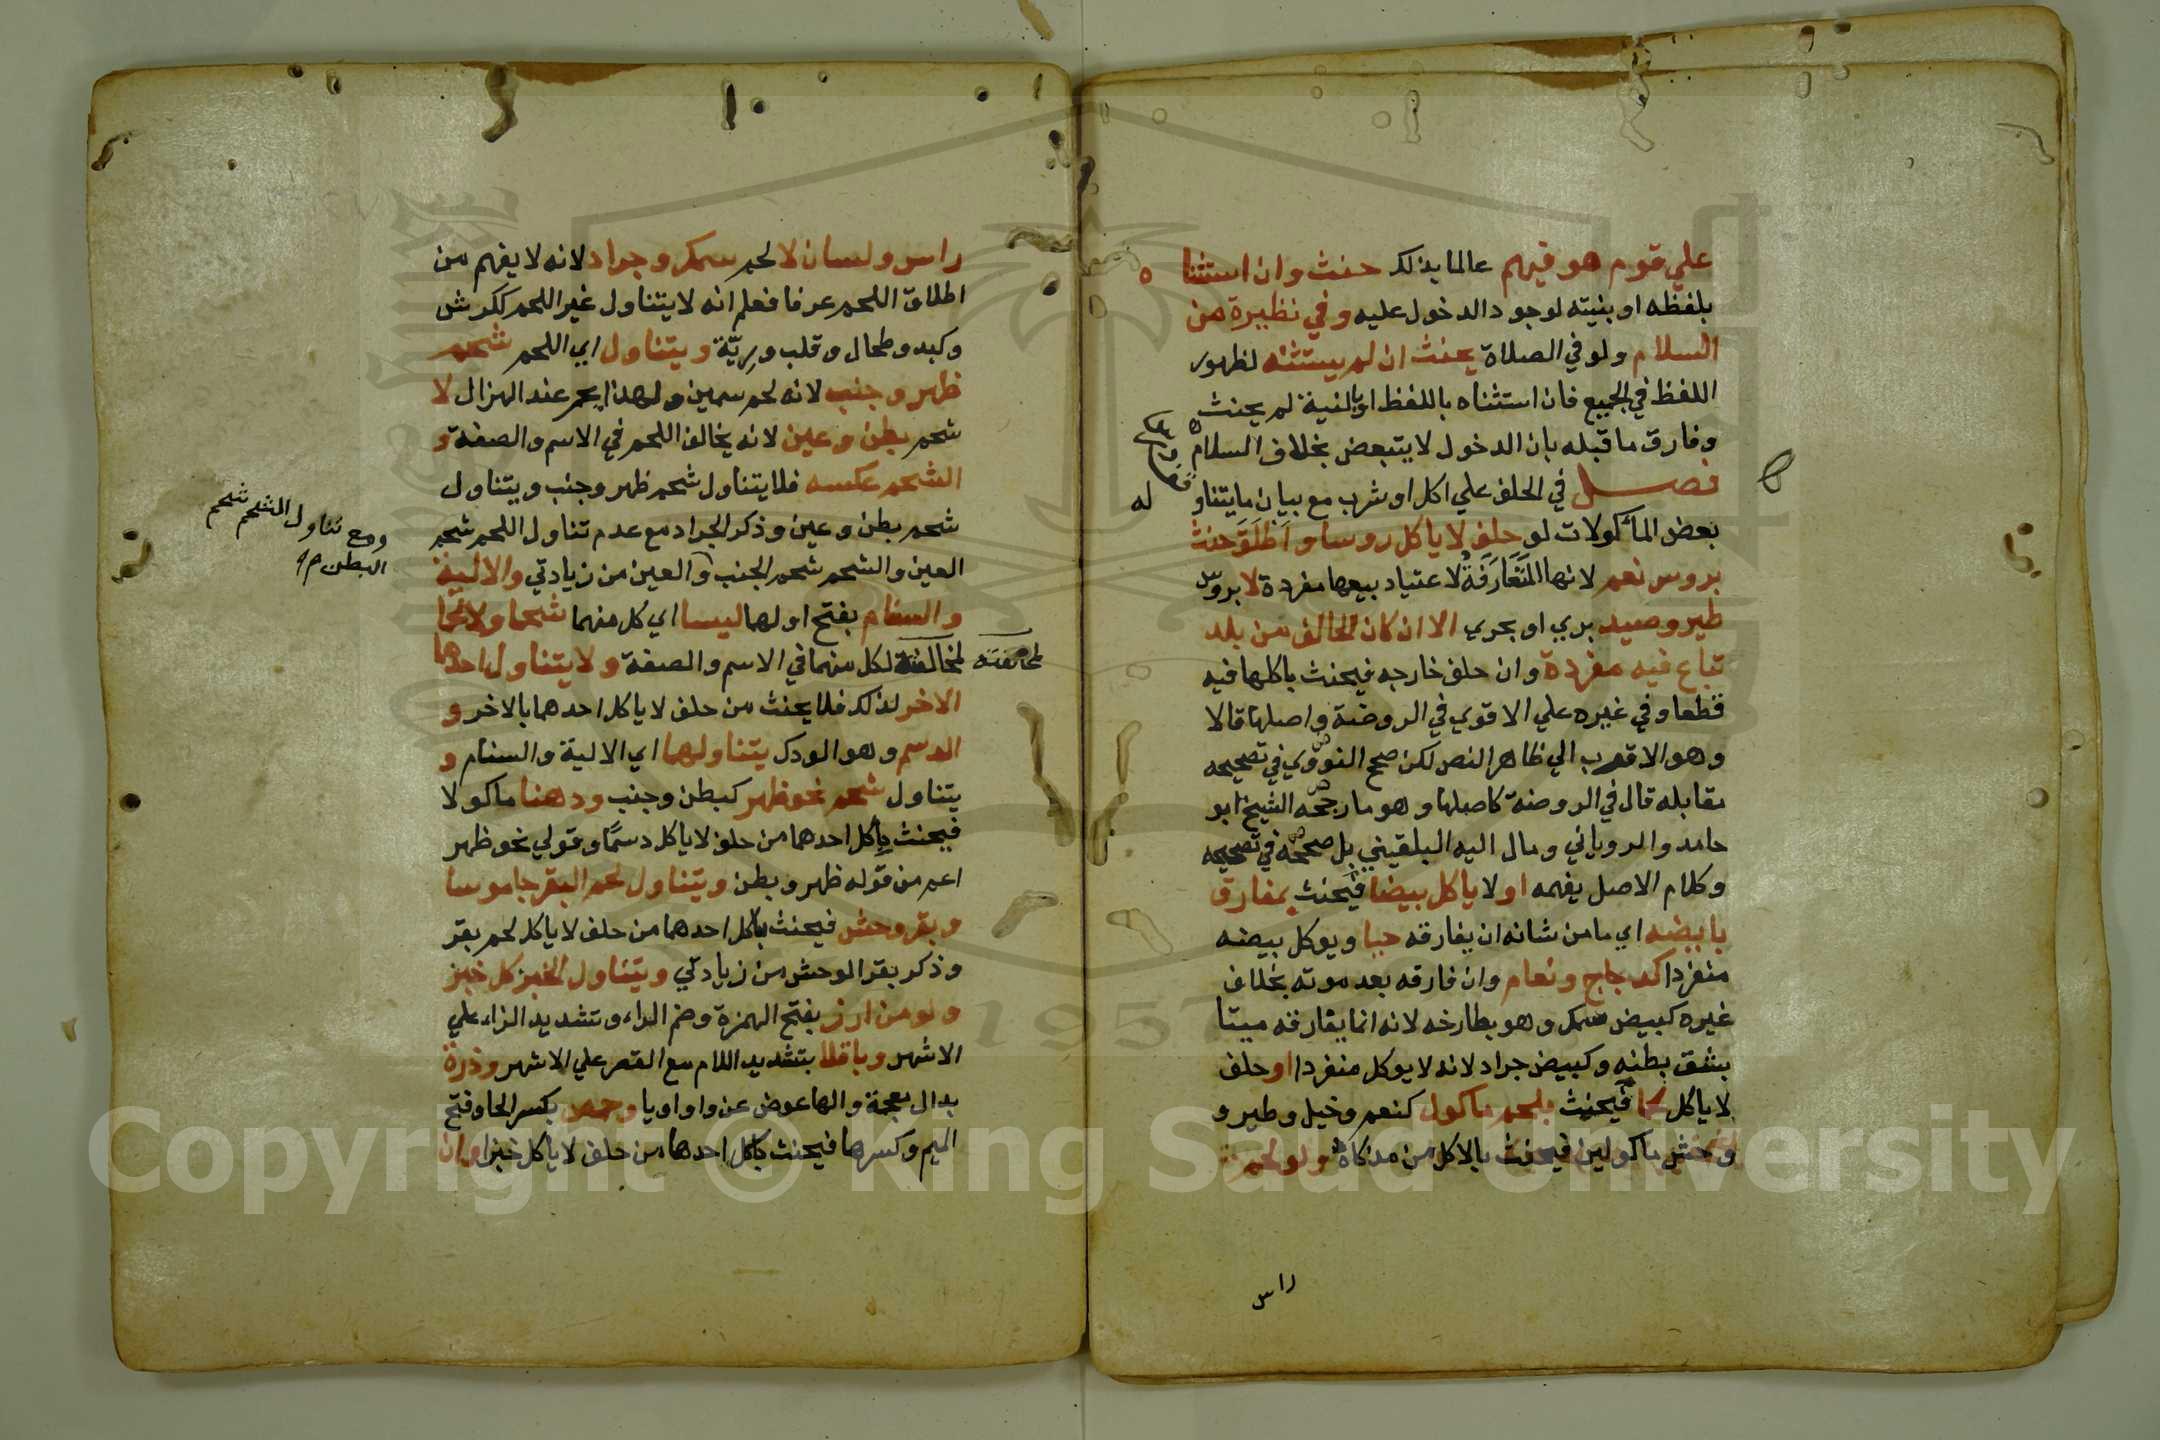 علي قوم هو فيهم عالما بذلك حنث وان استثناه
بلفظه او بنيته لوجود الدخول عليه وفي نظيره من
السلام ولو في الصلاة يحنث ان لم يستثنه لظهور
اللفظ في الجميع فان استثناه باللفظ او بالنية لم يحنث
وفارق ما قبله بان الدخول لا يتبعض بخلاف السلام
فصل في الحلف علي اكل او شرب مع بيان ما يتناوله
بعض المأكولات لو حلف لا ياكل روسا واطلق حنث
بروس نعم لانها المتعارفة لاعتياد بيعها مفردة لا بروس
طير وصيد بري او بحري الا ان كان الحالف من بلد
تباع فيه مفردة وان حلف خارجه فيحنث باكلها فيه
قطعا وفي غيره علي الاقوي في الروضة واصلها قالا
وهو الاقرب الي ظاهر النص لكن صحح النووي في تصحيحه
مقابله قال في الروضة كاصلها وهو ما رجحه الشيخ ابو
حامد والروياني ومال اليه البلقيني بل صححه في تصحيحه
وكلام الاصل يفهمه او لا ياكل بيضا فيحنث بمفارق
بايضه اي ما من شانه ان يفارقه حيا ويوكل بيضه
منفردا كدجاج ونعام وان فارقه بعد موته بخلاف
غيره كبيض سمك وهو بطارخه لانه انما يفارقه ميتا
بشق بطنه وكبيض جراد لانه لا يوكل منفردا او حلف
لا ياكل لحما فيحنث بلحم ماكول كنعم وخيل وطير و
وحش ماكولين فيحنث بالاكل من مذكاة ولو لحم
راس
راس ولسان لا لحم سمك وجراد لانه لا يفهم من
اطلاق اللحم عرفا فعلم انه لا يتناول غير اللحم ككرش
وكبد وطحال وقلب ورية ويتناول اي اللحم شحم
ظهر وجنب لانه لحم سمين ولهذا يحمر عند الهزال لا
شحم بطن وعين لانه يخالف اللحم في الاسم والصفة و
الشحم عكسه فلا يتناول شحم ظهر وجنب ويتناول
شحم بطن وعين وذكر الجراد مع عدم تناول اللحم شحم
العين والشحم شحم الجنب والعين من زيادتي والالية
والسنام بفتح اولهما ليسا اي كل منهما شحما ولا لحما
لمخالفته لكل منهما في الاسم والصفة ولا يتناول احدهما
الاخر لذلك فلا يحنث من حلف لا ياكل احدهما بالاخر و
الدسم وهو الودك يتناولهما اي الالية والسنام و
يتناول شحم نحو ظهر كبطن وجنب ودهنا ماكولا
فيحنث باكل احدهما من حلف لا ياكل دسما وقولي نحو ظهر
اعم من قوله ظهر وبطن ويتناول لحم البقر جاموسا
وبقر وحش فيحنث باكل احدهما من حلف لا ياكل لحم بقر
وذكر بقر الوحش من زيادتي ويتناول الخبز كل خبز
ولو من ارز بفتح الهمزة وضم الراء وتشديد الزاء علي
الاشهر وباقلا بتشديد اللام مع القصر علي الاشهر وذرة
بدال معجمة والها عوض عن واو او يا وحمص بكسر الحا وفتح
الميم وكسرها فيحنث باكل احدها من حلف لا ياكل خبزا وان
ومع تناول الشحم شحم
البطن
لمخالفته
Copyright © King Saud University
1957